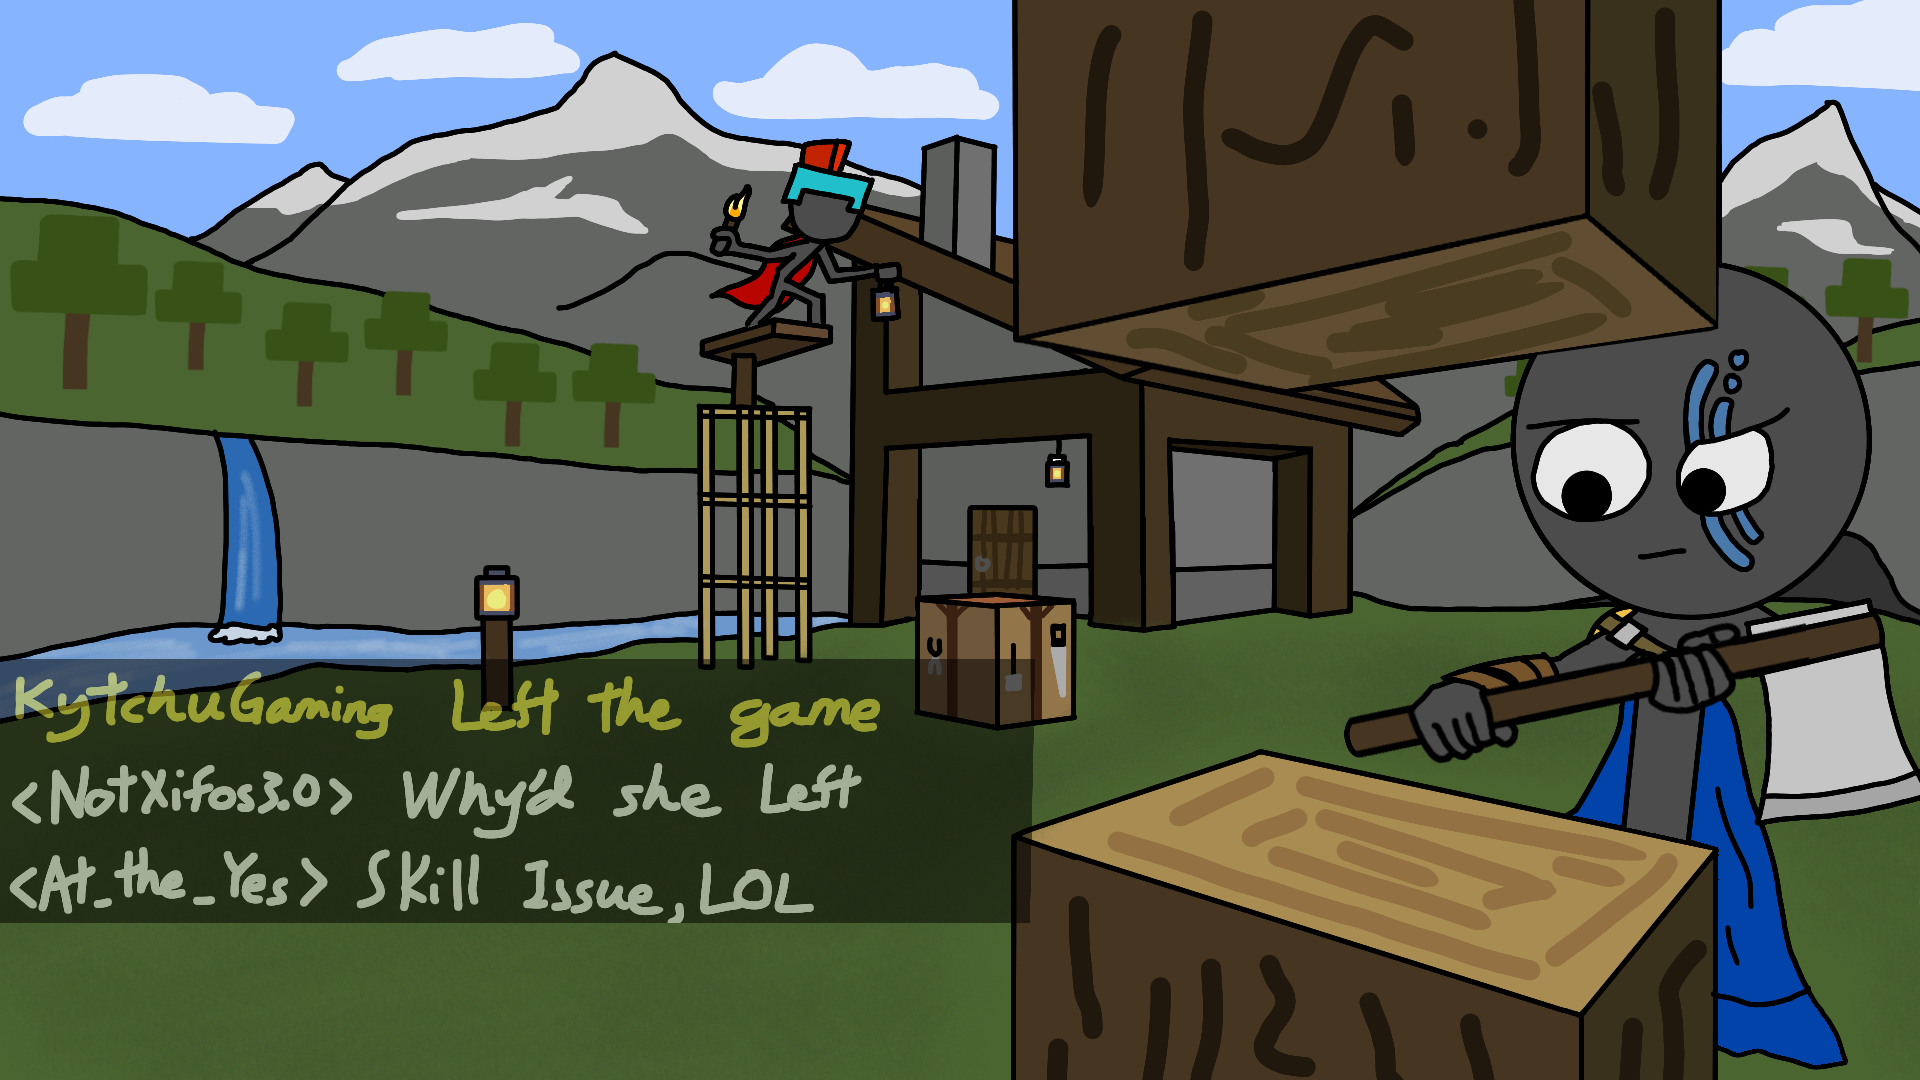 KytchuGaming Left the game
<NotXifos3.0> Why'd she Left
<At_the_Yes> Skill Issue, LOL